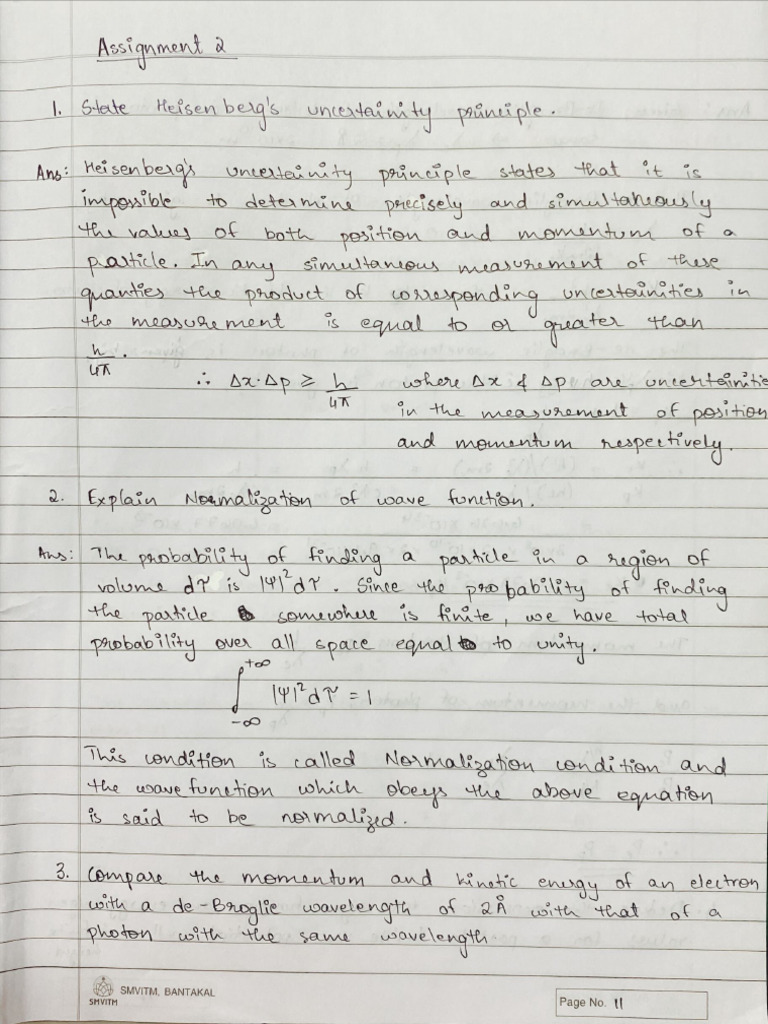 Assignment 2
1. State Heisenberg's uncertainity principle.
Ans: Heisenberg's uncertainity principle states that it is
impossible to determine precisely and simultaneously
the values of both position and momentum of a
particle. In any simultaneous measurement of these
quanties the product of corresponding uncertainities in
the measurement is equal to or greater than
h/4π.
∴ Δx·Δp ≥ h/4π where Δx & Δp are uncertainitie
in the measurement of position
and momentum respectively.
2. Explain Normalization of wave function.
Ans: The probability of finding a particle in a region of
volume dτ is |Ψ|²dτ. Since the probability of finding
the particle somewhere is finite, we have total
probability over all space equal to unity.
∫_{-∞}^{+∞} |Ψ|²dτ = 1
This condition is called Normalization condition and
the wavefunction which obeys the above equation
is said to be normalized.
3. Compare the momentum and kinetic energy of an electron
with a de-Broglie wavelength of 2Å with that of a
photon with the same wavelength
SMVITM
SMVITM, BANTAKAL
Page No. 11